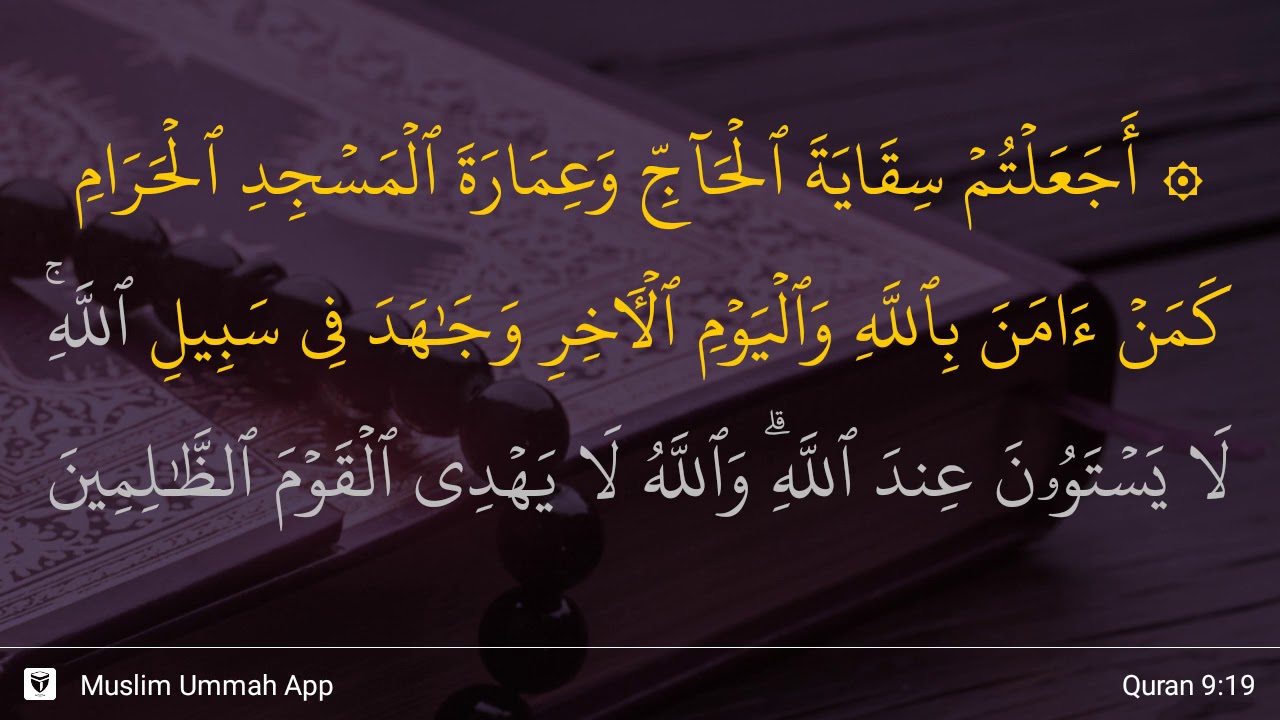 ۞ أَجَعَلۡتُمۡ سِقَايَةَ ٱلۡحَآجِّ وَعِمَارَةَ ٱلۡمَسۡجِدِ ٱلۡحَرَامِ
كَمَنۡ ءَامَنَ بِٱللَّهِ وَٱلۡيَوۡمِ ٱلۡأٓخِرِ وَجَٰهَدَ فِي سَبِيلِ ٱللَّهِۚ
لَا يَسۡتَوُۥنَ عِندَ ٱللَّهِۗ وَٱللَّهُ لَا يَهۡدِي ٱلۡقَوۡمَ ٱلظَّٰلِمِينَ
Muslim Ummah App
Quran 9:19